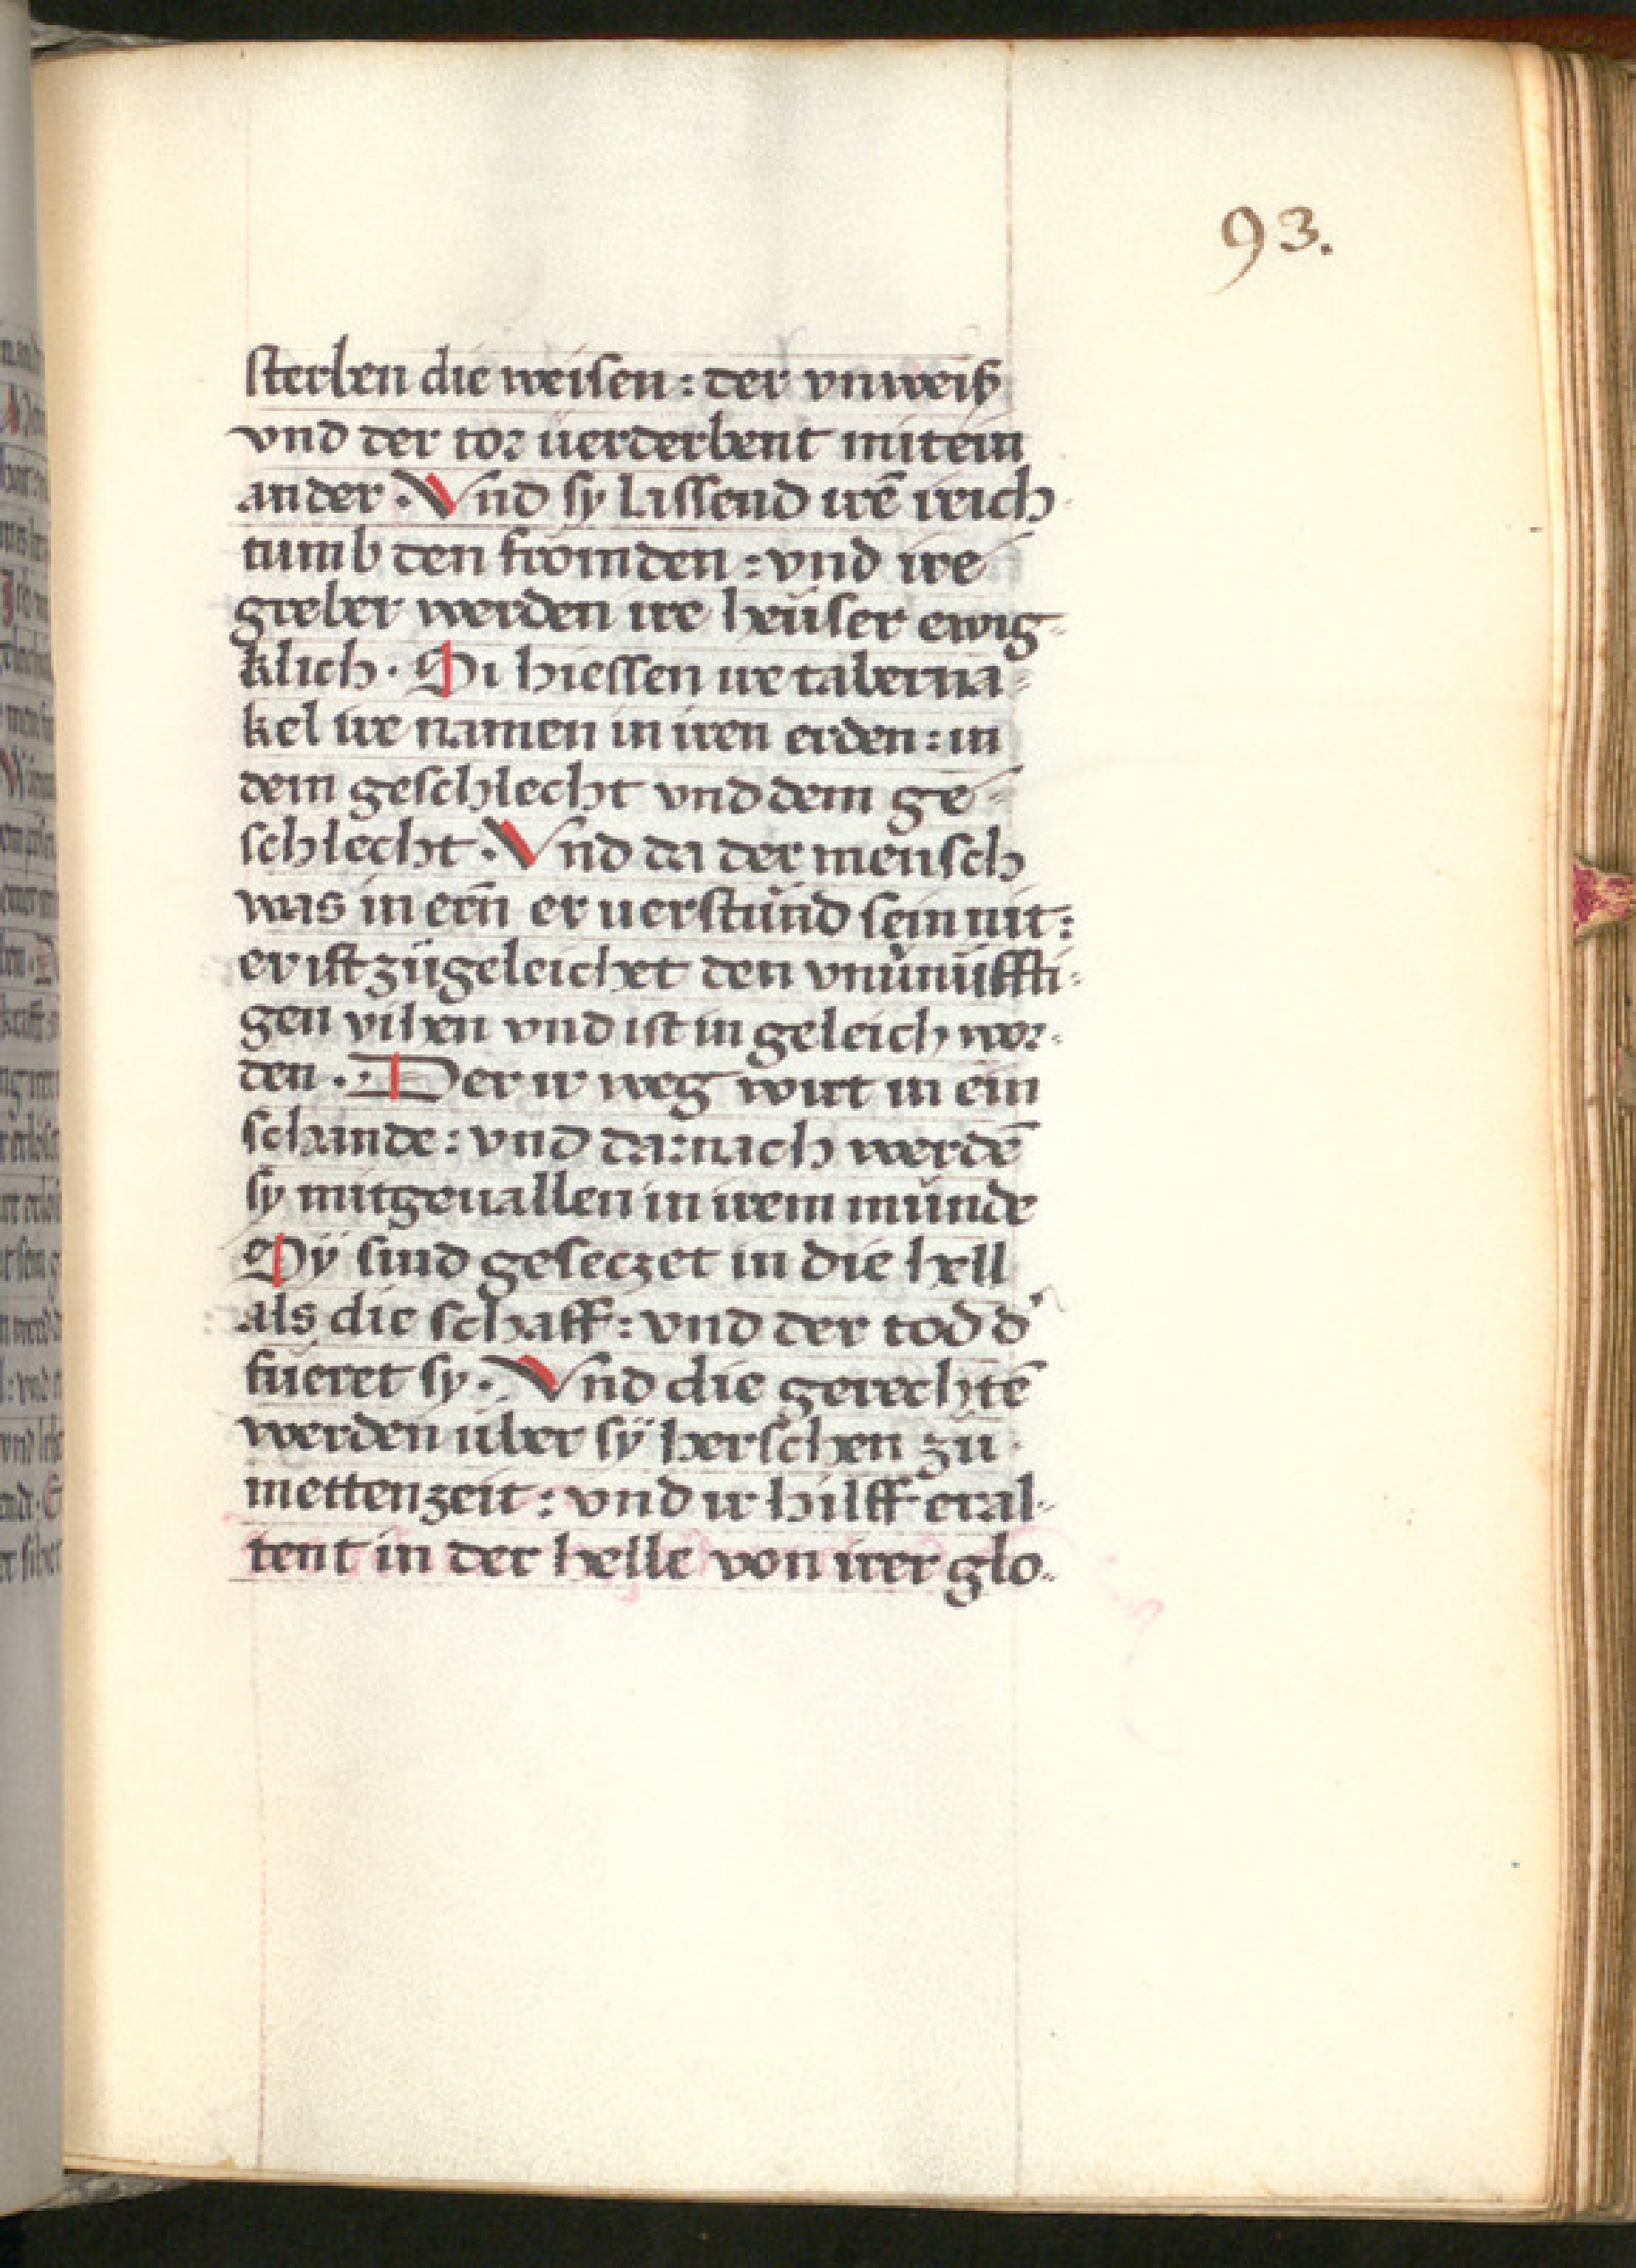 93.
sterben die weisen : der vnweiß
vnd der tor uerderbent mitein
ander · Vnd sy lissend irē reich
tumb den frömden : vnd ire
greber werden ire heüser ewig-
klich · Si hiessen ire taberna-
kel ire namen in iren erden : in
dem geschlecht vnd dem ge-
schlecht · Vnd da der mensch
was in ern̄ er uerstůnd sein nit :
er ist zůgeleichet den vnuͦnüffti-
gen vihen vnd ist in geleich wor-
den · Der ir weg wirt in ein
schande : vnd darnach werdē
sy mitgeuallen in irem munde
Sÿ sind geseczet in die hell
als die schaff : vnd der tod d'
füeret sy · Vnd die gerechtē
werden über sÿ herschen zů
mettenzeit : vnd ir hilff eral-
tent in der helle von irer glo-